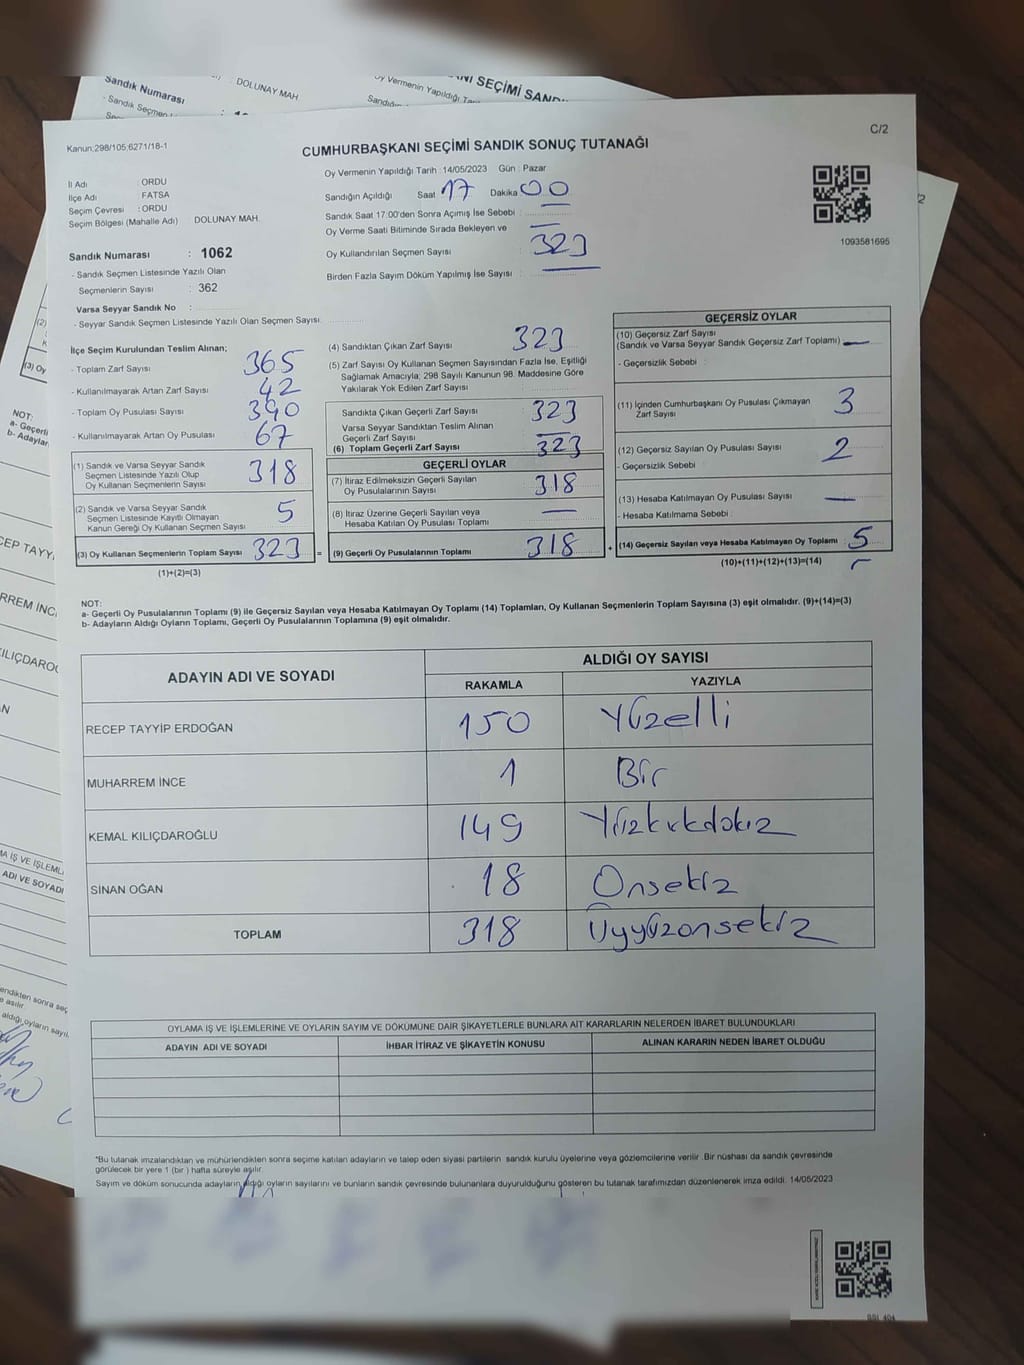 Sandık Numarası
DOLUNAY MAH
Oy Vermenin Yapıldığı
SEÇİMİ
Kanun;298/105;6271/18-1
C/2
CUMHURBAŞKANI SEÇİMİ SANDIK SONUÇ TUTANAĞI
İl Adı : ORDU
İlçe Adı FATSA
Seçim Çevresi : ORDU
Seçim Bölgesi (Mahalle Adı) DOLUNAY MAH.
Sandık Numarası : 1062
- Sandık Seçmen Listesinde Yazılı Olan
Seçmenlerin Sayısı : 362
Varsa Seyyar Sandık No :
- Seyyar Sandık Seçmen Listesinde Yazılı Olan Seçmen Sayısı:
Oy Vermenin Yapıldığı Tarih : 14/05/2023 Gün : Pazar
Sandığın Açıldığı Saat 17 Dakika 00
Sandık Saat 17:00'den Sonra Açımış İse Sebebi :
Oy Verme Saati Bitiminde Sırada Bekleyen ve —
Oy Kullandırılan Seçmen Sayısı : 323
Birden Fazla Sayım Döküm Yapılmış İse Sayısı : —
1093581695
İlçe Seçim Kurulundan Teslim Alınan;
- Toplam Zarf Sayısı : 365
- Kullanılmayarak Artan Zarf Sayısı : 42
- Toplam Oy Pusulası Sayısı : 390
- Kullanılmayarak Artan Oy Pusulası : 67
(1) Sandık ve Varsa Seyyar Sandık
Seçmen Listesinde Yazılı Olup
Oy Kullanan Seçmenlerin Sayısı : 318
(2) Sandık ve Varsa Seyyar Sandık
Seçmen Listesinde Kayıtlı Olmayan
Kanun Gereği Oy Kullanan Seçmen Sayısı : 5
(3) Oy Kullanan Seçmenlerin Toplam Sayısı : 323 =
(1)+(2)=(3)
(4) Sandıktan Çıkan Zarf Sayısı : 323
(5) Zarf Sayısı Oy Kullanan Seçmen Sayısından Fazla İse, Eşitliği
Sağlamak Amacıyla; 298 Sayılı Kanunun 98. Maddesine Göre
Yakılarak Yok Edilen Zarf Sayısı :
Sandıkta Çıkan Geçerli Zarf Sayısı : 323
Varsa Seyyar Sandıktan Teslim Alınan
Geçerli Zarf Sayısı : —
(6) Toplam Geçerli Zarf Sayısı : 323
GEÇERLİ OYLAR
(7) İtiraz Edilmeksizin Geçerli Sayılan
Oy Pusulalarının Sayısı : 318
(8) İtiraz Üzerine Geçerli Sayılan veya
Hesaba Katılan Oy Pusulası Toplamı : —
(9) Geçerli Oy Pusulalarının Toplamı : 318 +
GEÇERSİZ OYLAR
(10) Geçersiz Zarf Sayısı
(Sandık ve Varsa Seyyar Sandık Geçersiz Zarf Toplamı) —
- Geçersizlik Sebebi :
(11) İçinden Cumhurbaşkanı Oy Pusulası Çıkmayan
Zarf Sayısı : 3
(12) Geçersiz Sayılan Oy Pusulası Sayısı : 2
- Geçersizlik Sebebi :
(13) Hesaba Katılmayan Oy Pusulası Sayısı : —
- Hesaba Katılmama Sebebi :
(14) Geçersiz Sayılan veya Hesaba Katılmayan Oy Toplamı : 5
(10)+(11)+(12)+(13)=(14)
NOT:
a- Geçerli Oy Pusulalarının Toplamı (9) ile Geçersiz Sayılan veya Hesaba Katılmayan Oy Toplamı (14) Toplamları, Oy Kullanan Seçmenlerin Toplam Sayısına (3) eşit olmalıdır. (9)+(14)=(3)
b- Adayların Aldığı Oyların Toplamı, Geçerli Oy Pusulalarının Toplamına (9) eşit olmalıdır.
ADAYIN ADI VE SOYADI
ALDIĞI OY SAYISI
RAKAMLA YAZIYLA
RECEP TAYYİP ERDOĞAN 150 Yüzelli
MUHARREM İNCE 1 Bir
KEMAL KILIÇDAROĞLU 149
SİNAN OĞAN 18 Onsekiz
TOPLAM 318 Üçyüzonsekiz
OYLAMA İŞ VE İŞLEMLERİNE VE OYLARIN SAYIM VE DÖKÜMÜNE DAİR ŞİKAYETLERLE BUNLARA AİT KARARLARIN NELERDEN İBARET BULUNDUKLARI
ADAYIN ADI VE SOYADI İHBAR İTİRAZ VE ŞİKAYETİN KONUSU ALINAN KARARIN NEDEN İBARET OLDUĞU
*Bu tutanak imzalandıktan ve mühürlendikten sonra seçime katılan adayların ve talep eden siyasi partilerin sandık kurulu üyelerine veya gözlemcilerine verilir .Bir nüshası da sandık çevresinde
görülecek bir yere 1 (bir ) hafta süreyle asılır.
Sayım ve döküm sonucunda adayların aldığı oyların sayılarını ve bunların sandık çevresinde bulunanlara duyurulduğunu gösteren bu tutanak tarafımızdan düzenlenerek imza edildi. 14/05/2023